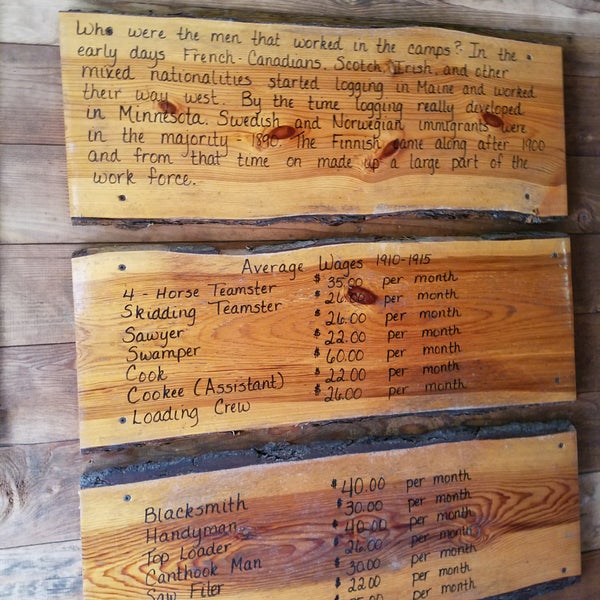 Who were the men that worked in the camps? In the
early days French-Canadians, Scotch, Irish, and other
mixed nationalities started logging in Maine and worked
their way west. By the time logging really developed
in Minnesota, Swedish and Norwegian immigrants were
in the majority 1890. The Finnish came along after 1900
and from that time on made up a large part of the
work force.
Average Wages 1910-1915
4 - Horse Teamster $35.00 per month
Skidding Teamster $26.00 per month
Sawyer $26.00 per month
Swamper $22.00 per month
Cook $60.00 per month
Cookee (Assistant) $22.00 per month
Loading Crew $26.00 per month
Blacksmith $40.00 per month
Handyman $30.00 per month
Top Loader $40.00 per month
Canthook Man $26.00 per month
Saw Filer $30.00 per month
$22.00 per month
per month